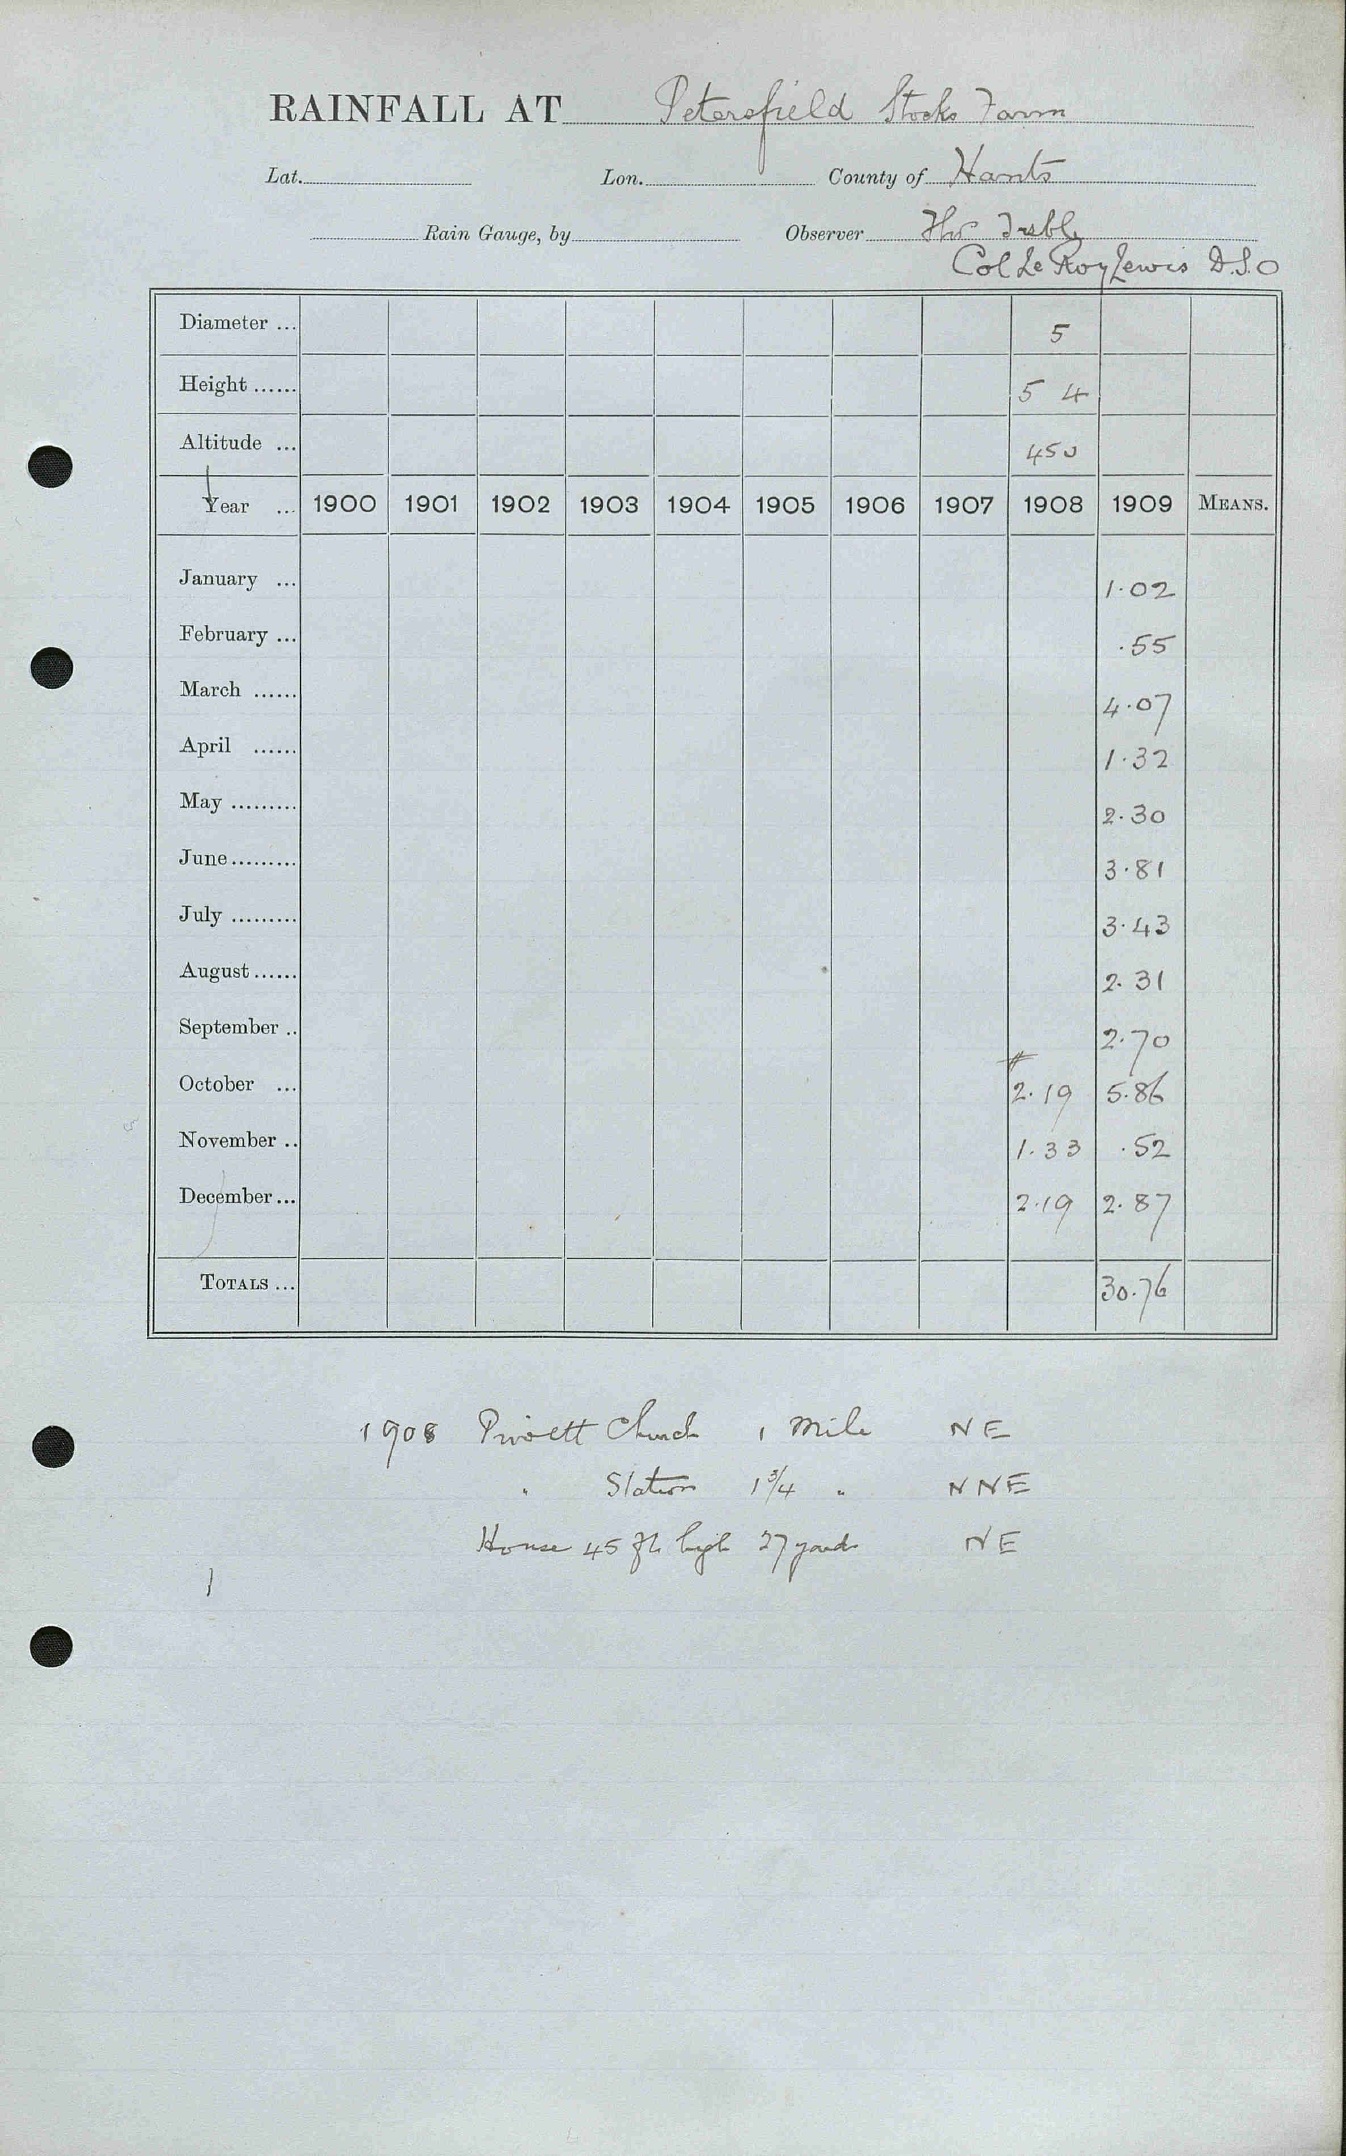 RAINFALL AT Petersfield Stocks Farm
Lat. Lon. County of Hants
Rain Gauge, by Observer Thos Trebly
Col Le Roy Lewis D.S.O
Diameter ... 5
Height ...... 5 4
Altitude ... 450
Year ... 1900 1901 1902 1903 1904 1905 1906 1907 1908 1909 MEANS.
January ... 1.02
February ... .55
March ...... 4.07
April ...... 1.32
May ......... 2.30
June ......... 3.81
July ......... 3.43
August ...... 2.31
September .. 2.70
October ... 2.19 5.86
November .. 1.33 .52
December ... 2.19 2.87
TOTALS ... 30.76
1908 Privett Church 1 Mile NE
" Station 1 3/4 " NNE
House 45 ft high 27 yards NE